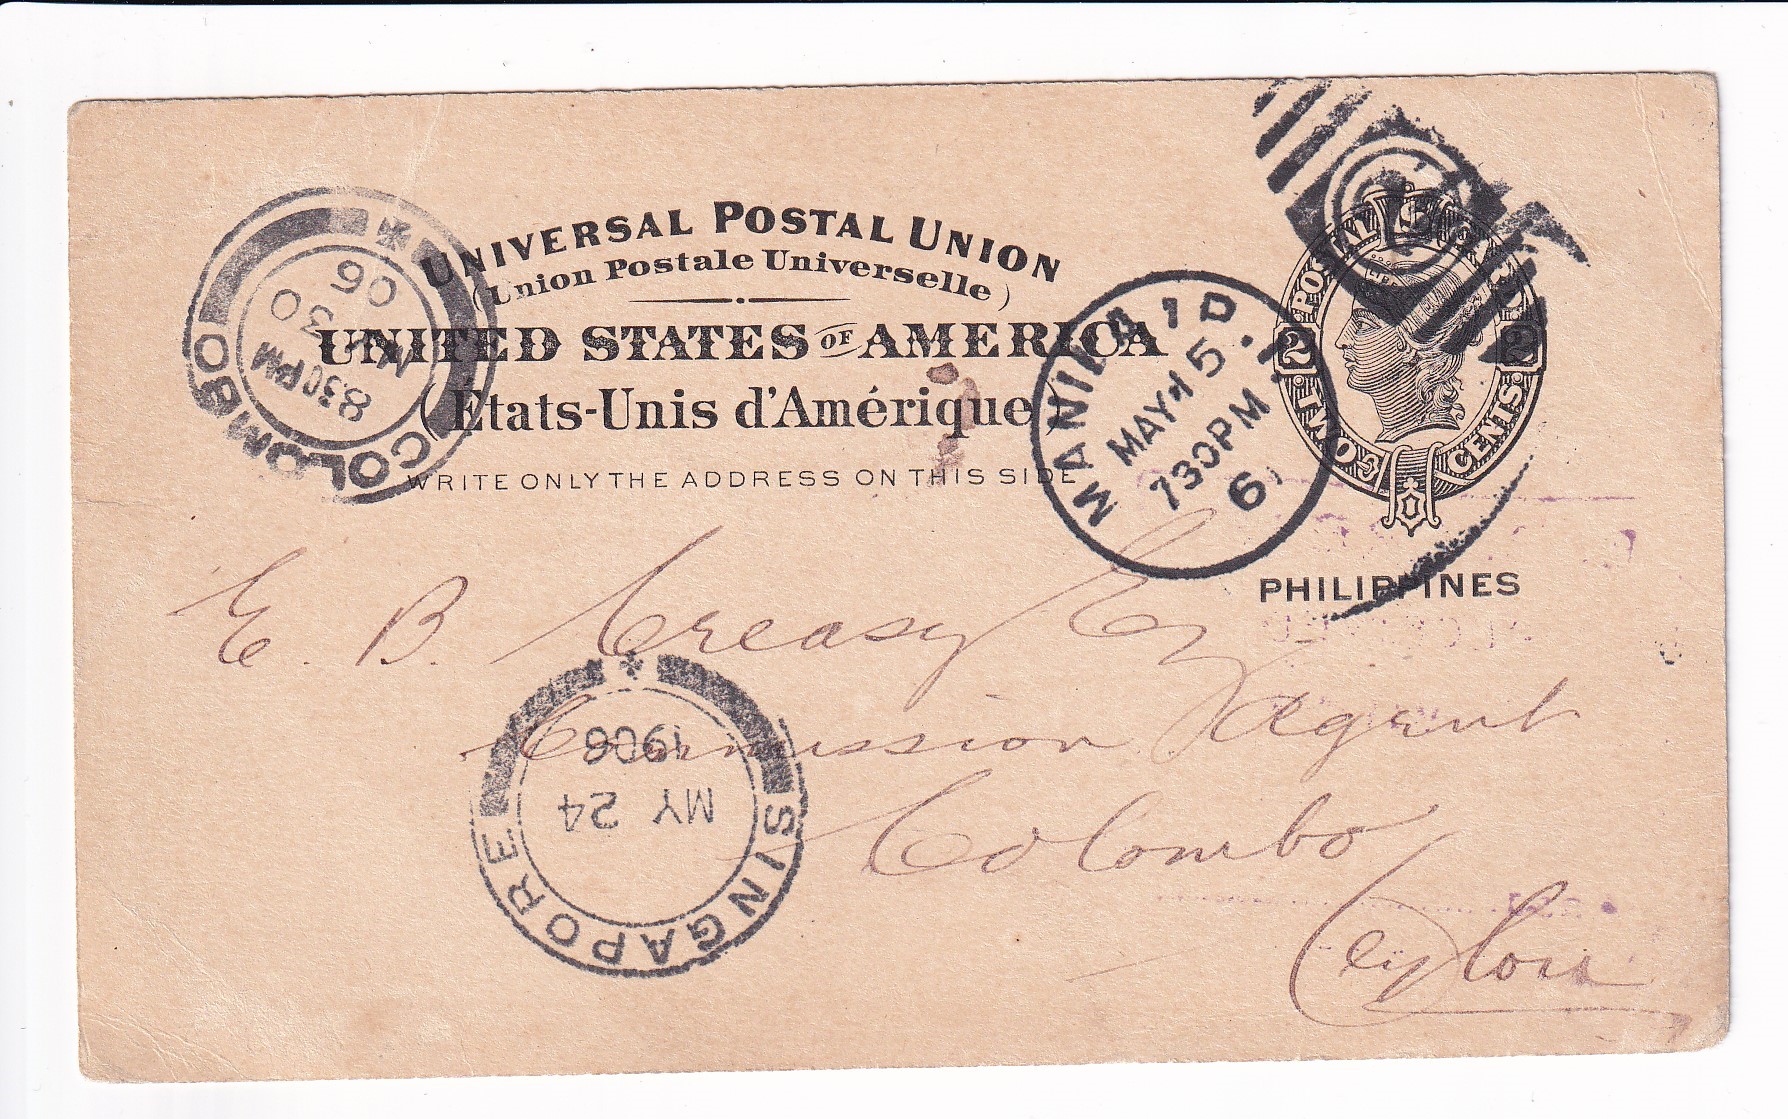 UNIVERSAL POSTAL UNION
(Union Postale Universelle)
UNITED STATES OF AMERICA
(États-Unis d'Amérique)
WRITE ONLY THE ADDRESS ON THIS SIDE
POSTAL
2 2
TWO CENTS
PHILIPPINES
MANILA, P.I.
MAY 15
730 PM
6
COLOMBO
830 PM
MY 30
06
E. B. Creasy Esq
Commission Agent
Colombo
Ceylon
SINGAPORE
MY 24
1906